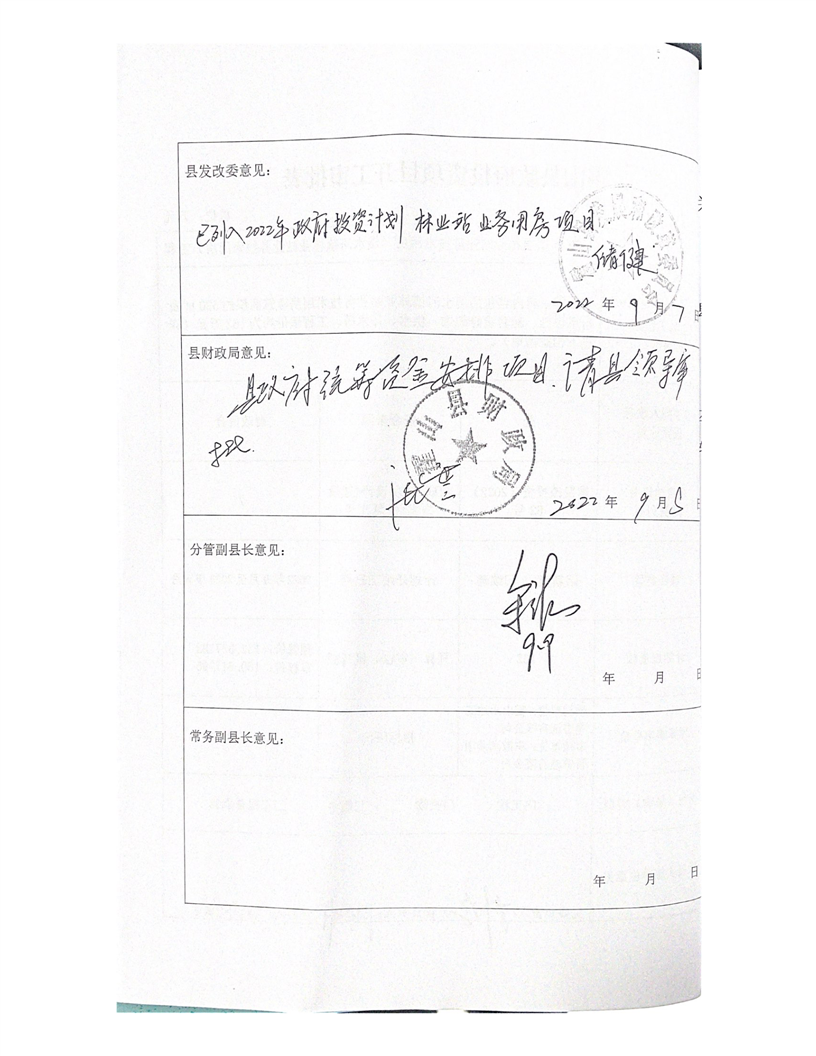 县发改委意见:
已列入2022年政府投资计划 林业站业务用房项目.
2022 年 9 月 7 日
县财政局意见:
县政府统筹资金安排项目.请县领导审
批.
霍山县财政局
2022 年 9 月 5 日
分管副县长意见:
9.9
年 月 日
常务副县长意见:
年 月 日